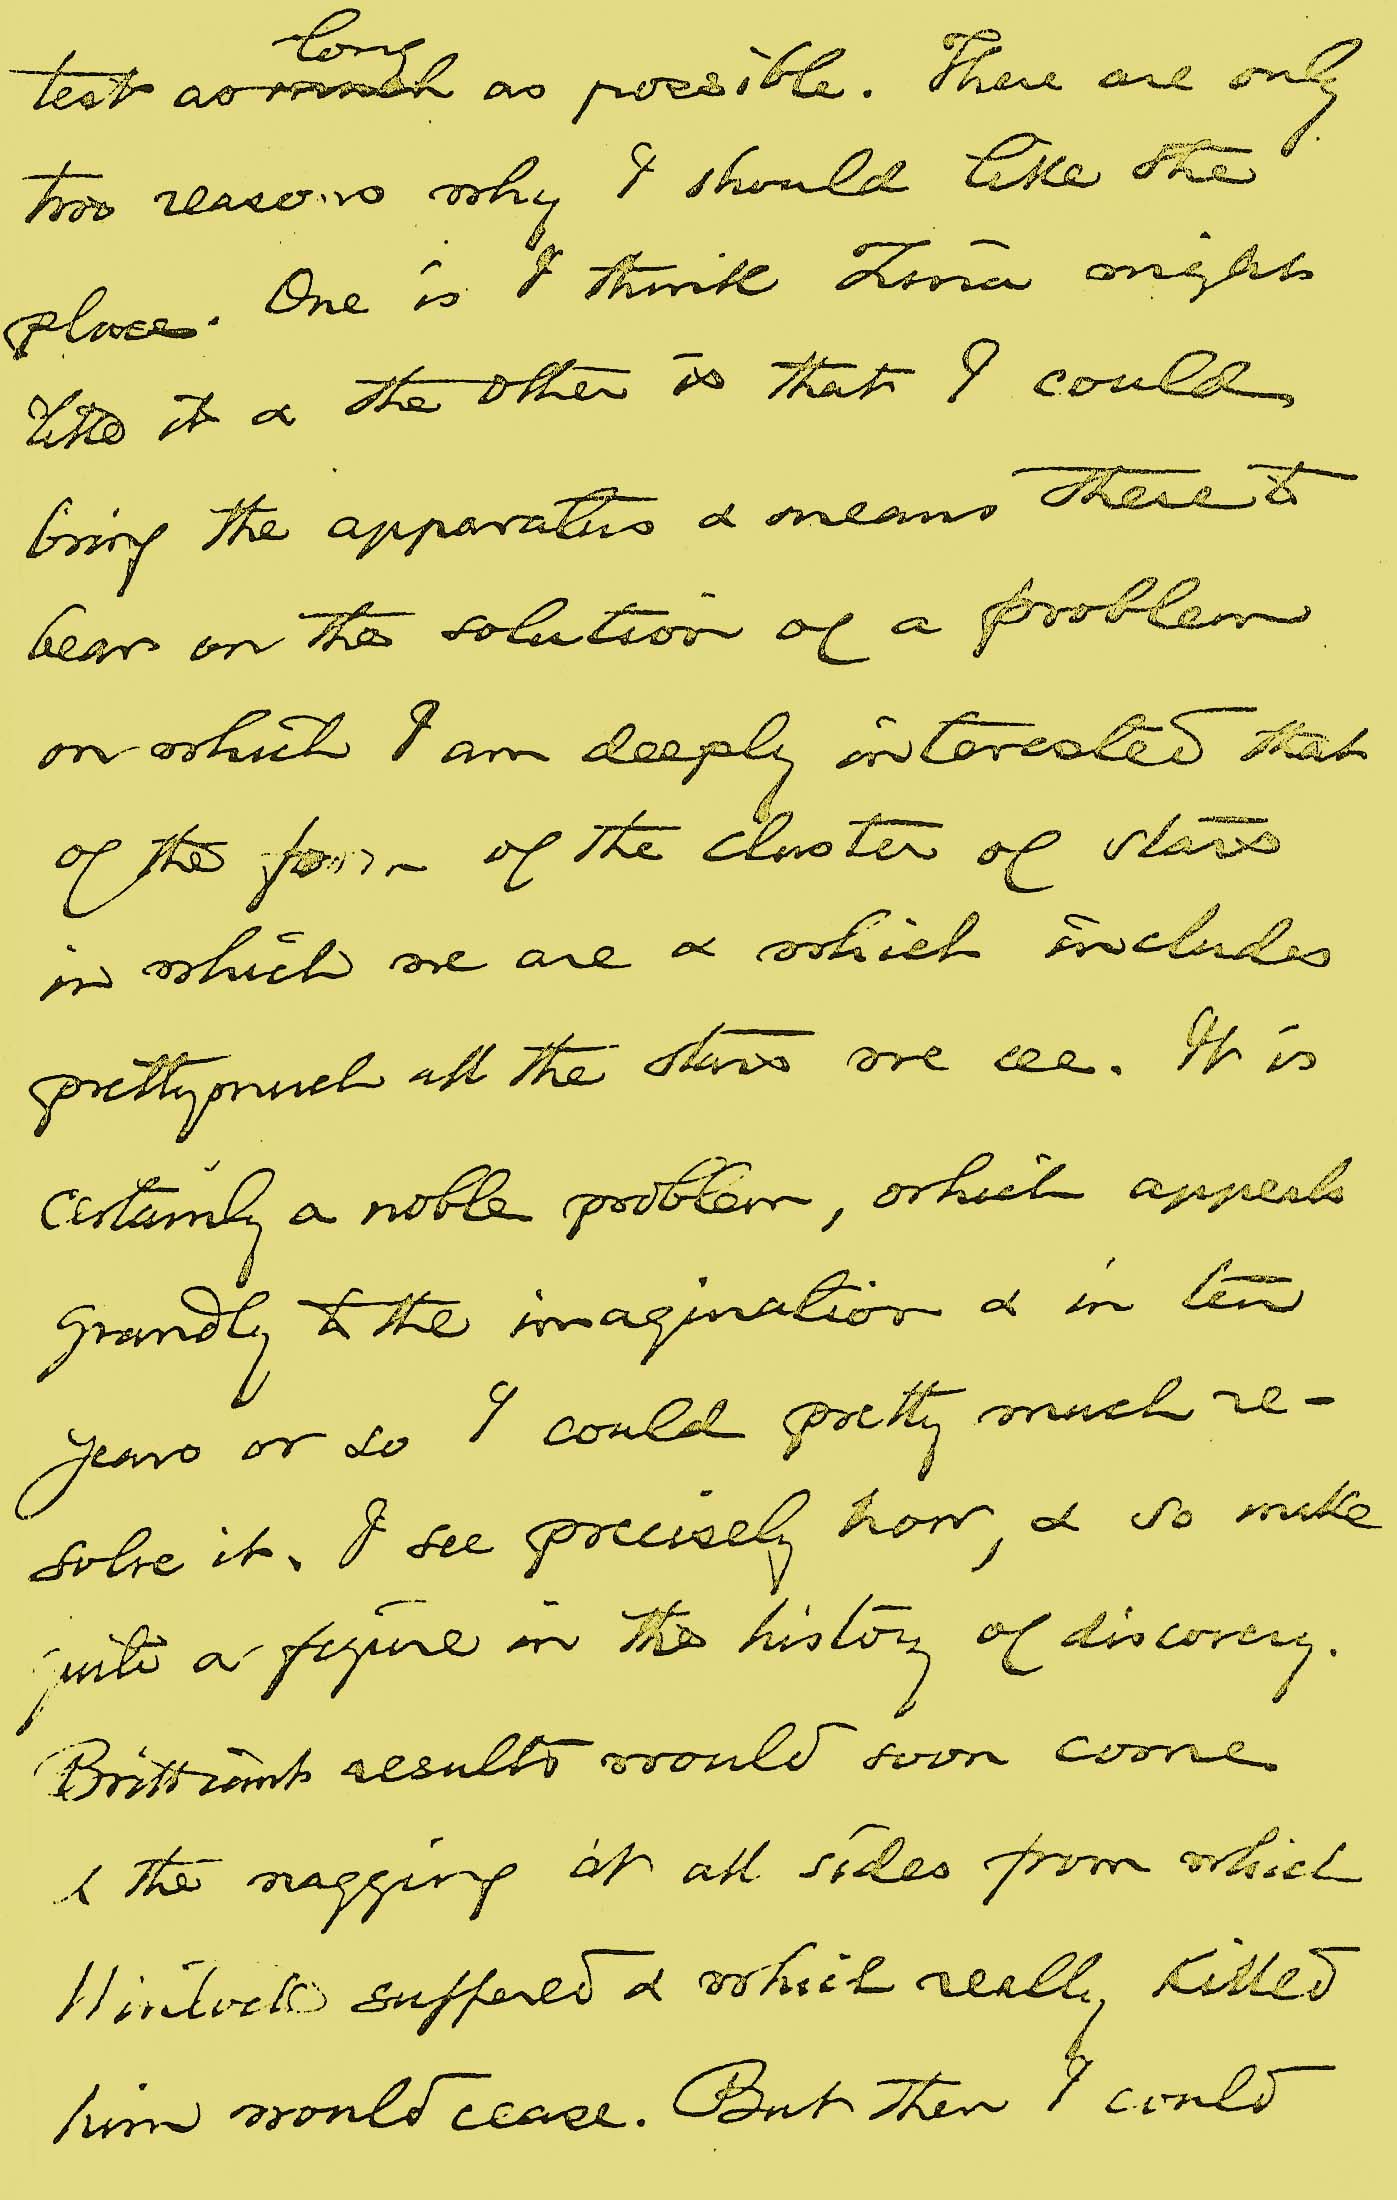 long
test as much as possible. There are only
two reasons why I should like the
place. One is I think Zina might
like it & the other is that I could
bring the apparatus & means there to
bear on the solution of a problem
on which I am deeply interested that
of the form of the cluster of stars
in which we are & which includes
pretty much all the stars we see. It is
certainly a noble problem, which appeals
grandly to the imagination & in ten
years or so I could pretty much re-
solve it. I see precisely how, & so make
quite a figure in the history of discovery.
Brilliant results would soon come
& the nagging at all sides from which
Winlock suffered & which really killed
him would cease. But then I could